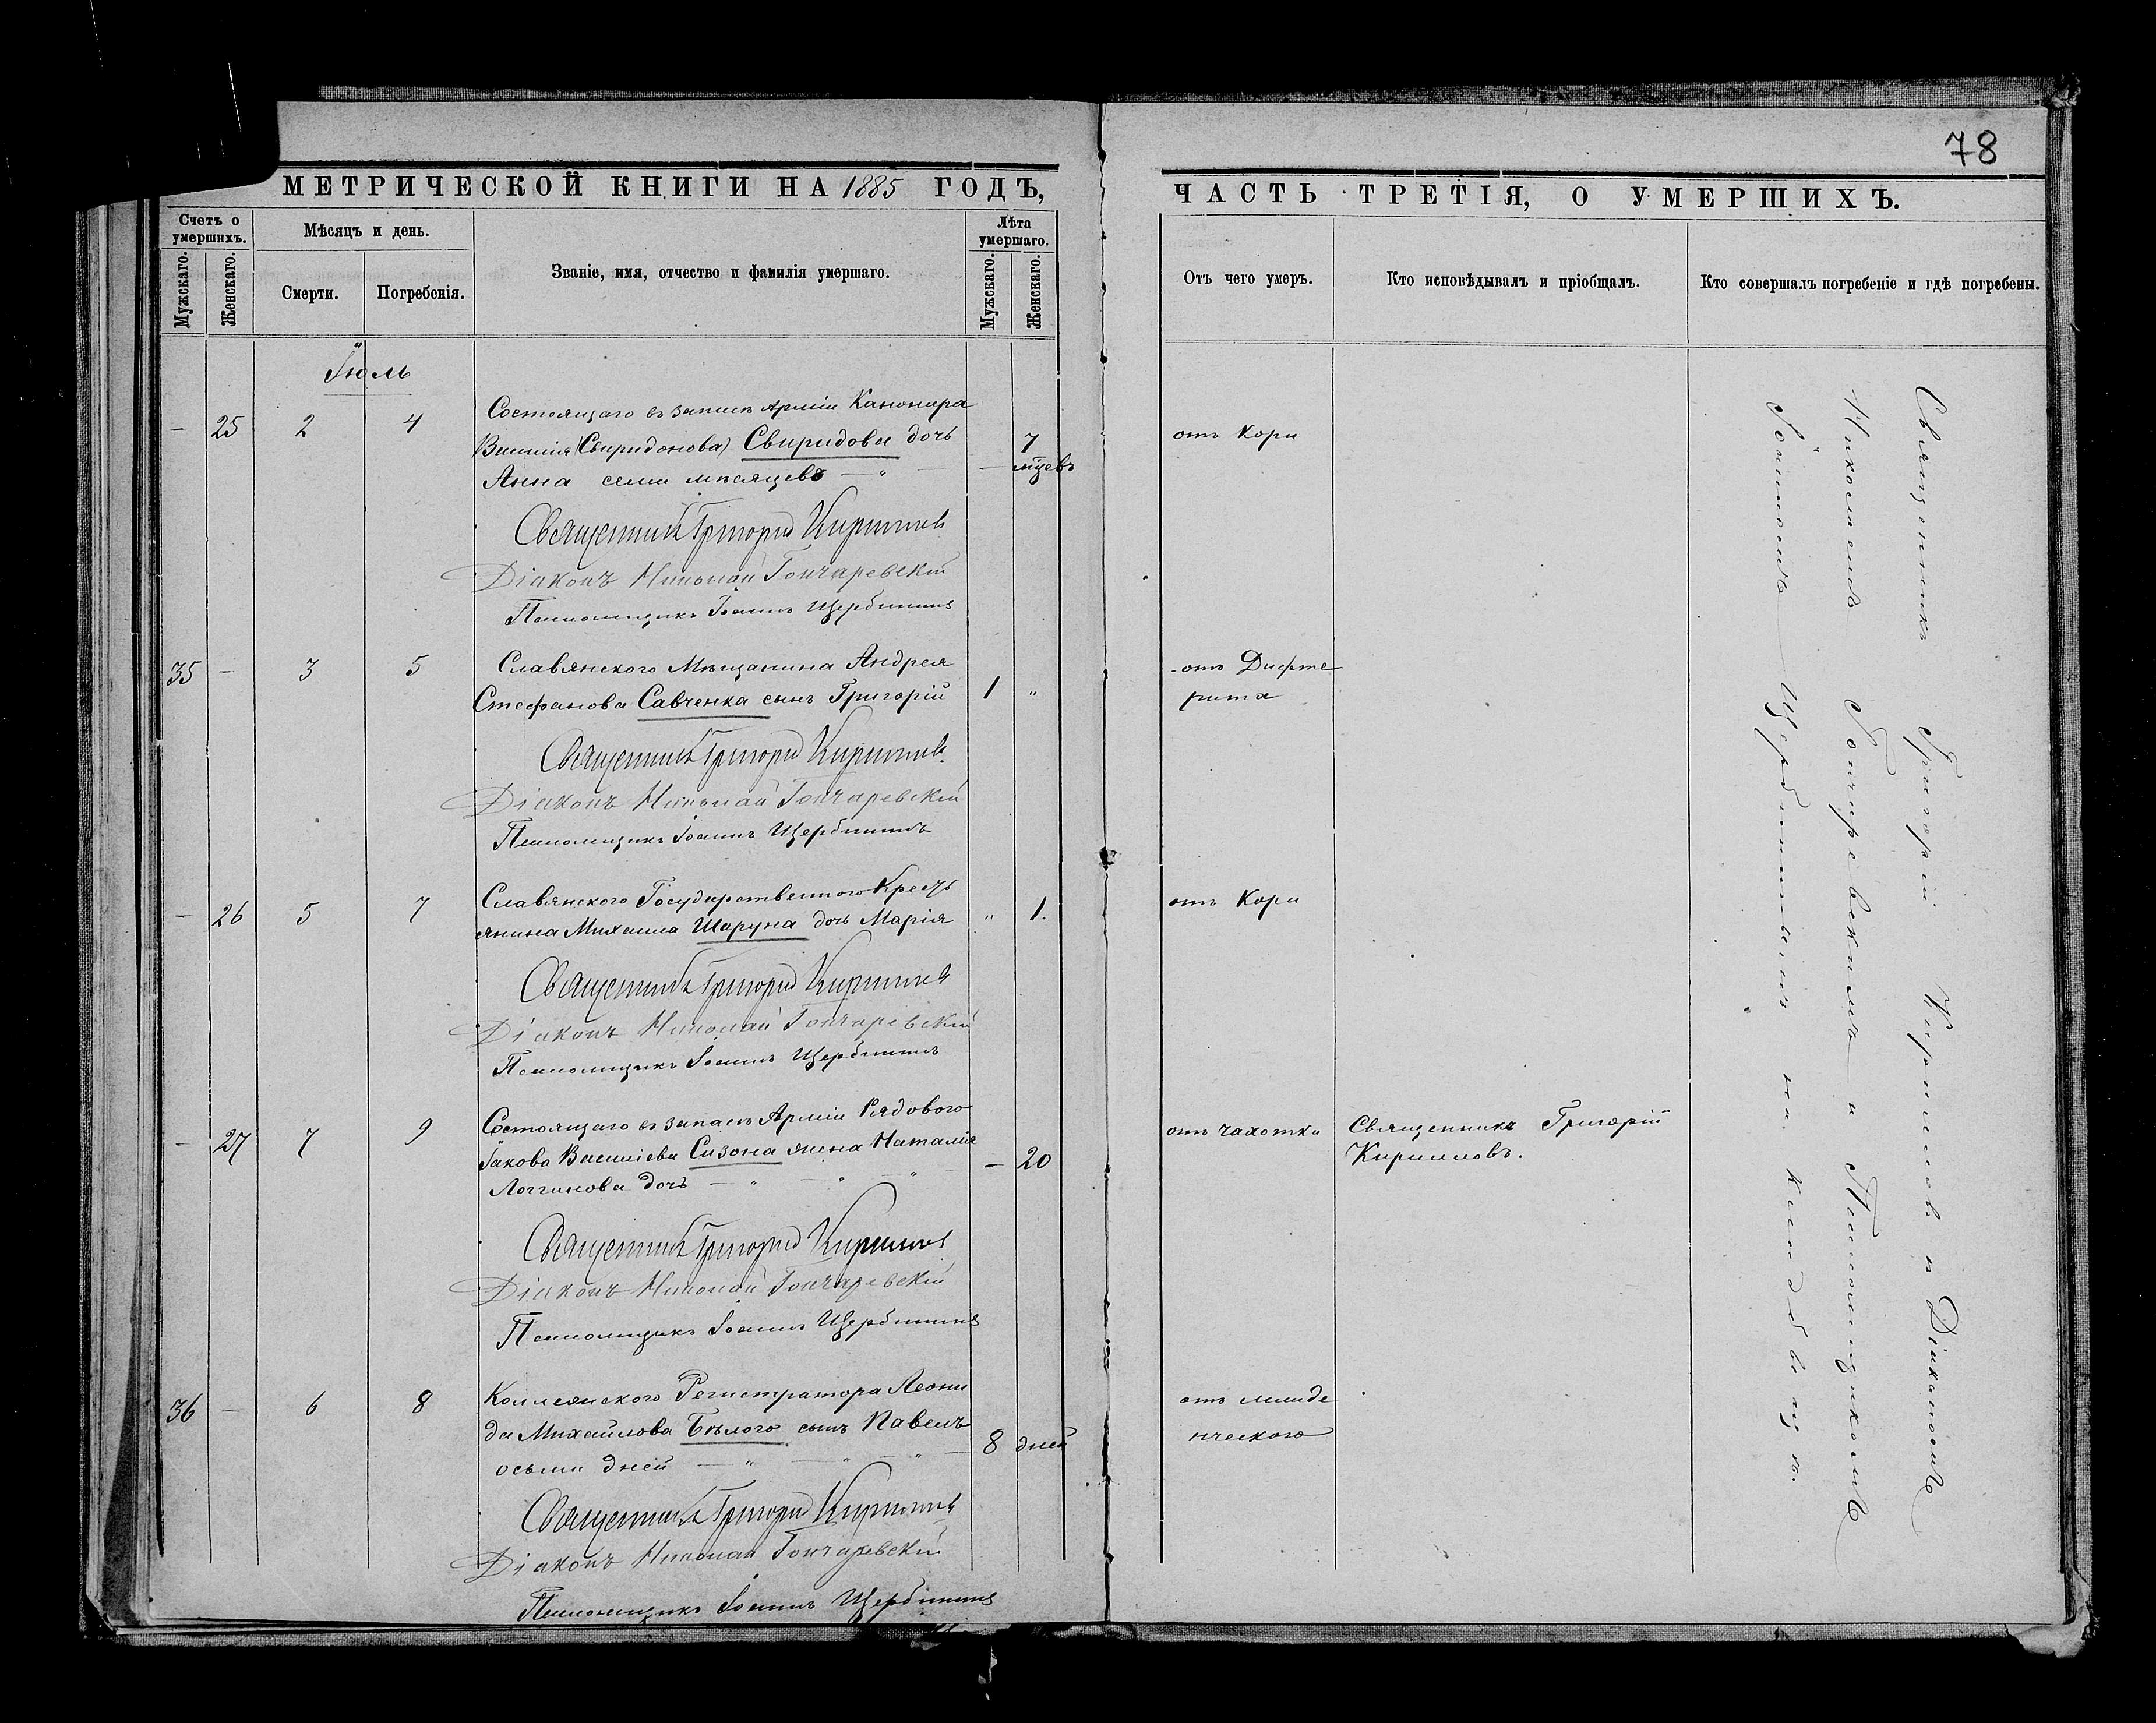 78
МЕТРИЧЕСКОЙ КНИГИ НА 1885 ГОДЪ,
ЧАСТЬ ТРЕТІЯ, О УМЕРШИХЪ.
Счетъ о умершихъ.
Мужскаго.
Женскаго.
Мѣсяцъ и день.
Смерти.
Погребенія.
Званіе, имя, отчество и фамилія умершаго.
Лѣта умершаго.
Мужскаго.
Женскаго.
Отъ чего умеръ.
Кто исповѣдывалъ и пріобщалъ.
Кто совершалъ погребеніе и гдѣ погребены.
Іюль
— 25 2 4
Состоящаго въ запасѣ Арміи Канонира
Василія (Свиридонова) Свиридова дочь
Анна семи мѣсяцевъ — "
— 7 мѣцевъ
отъ Кори
Священникъ Григорій Кирилловъ
Діаконъ Николай Гончаревскій
Псаломщикъ Іоаннъ Щербининъ
35 — 3 5
Славянского Мѣщанина Андрея
Стефанова Савченка сынъ Григорій
1 "
отъ Дифте
рита
Священникъ Григорій Кирилловъ
Діаконъ Николай Гончаревскій
Псаломщикъ Іоаннъ Щербининъ
— 26 5 7
Славянского Государственного Кресть
янина Михаила Шаруна дочь Марія
" 1.
отъ Кори
Священникъ Григорій Кирилловъ
Діаконъ Николай Гончаревскій
Псаломщикъ Іоаннъ Щербининъ
— 27 7 9
Состоящаго въ запасѣ Арміи Рядового
Іакова Василіева Сизона жена Наталія
Логгинова дочь — " — " — "
— 20
отъ чахотки
Священникъ Григорій
Кирилловъ.
Священникъ Григорій Кирилловъ
Діаконъ Николай Гончаревскій
Псаломщикъ Іоаннъ Щербининъ
36 — 6 8
Коллежского Регистратора Леони
да Михайлова Бѣлого сынъ Павелъ
осьми дней — " — " — "
8 дней
отъ младе
нческого
Священникъ Григорій Кирилловъ
Діаконъ Николай Гончаревскій
Псаломщикъ Іоаннъ Щербининъ
Священникъ Григорій Кирилловъ и Діакономъ
Николаемъ Гончаревскимъ и Псаломщикомъ
Іоанномъ Щербининымъ на кладбищѣ.